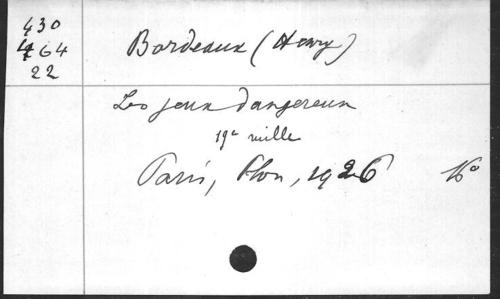 430
464
22
Bordeaux (Henry)
Les jeux dangereux
19e mille
Paris, Plon, 1926 16°